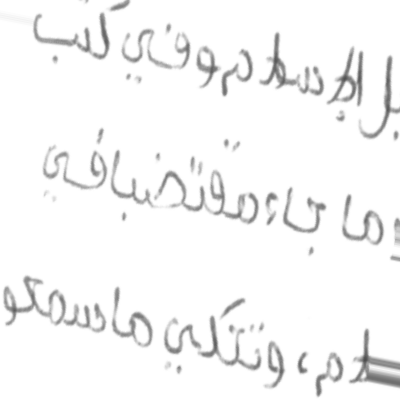 بل الإسلام وفي كتب
وما جاء مقتضبا في
لام، وتتكي ما سمعو